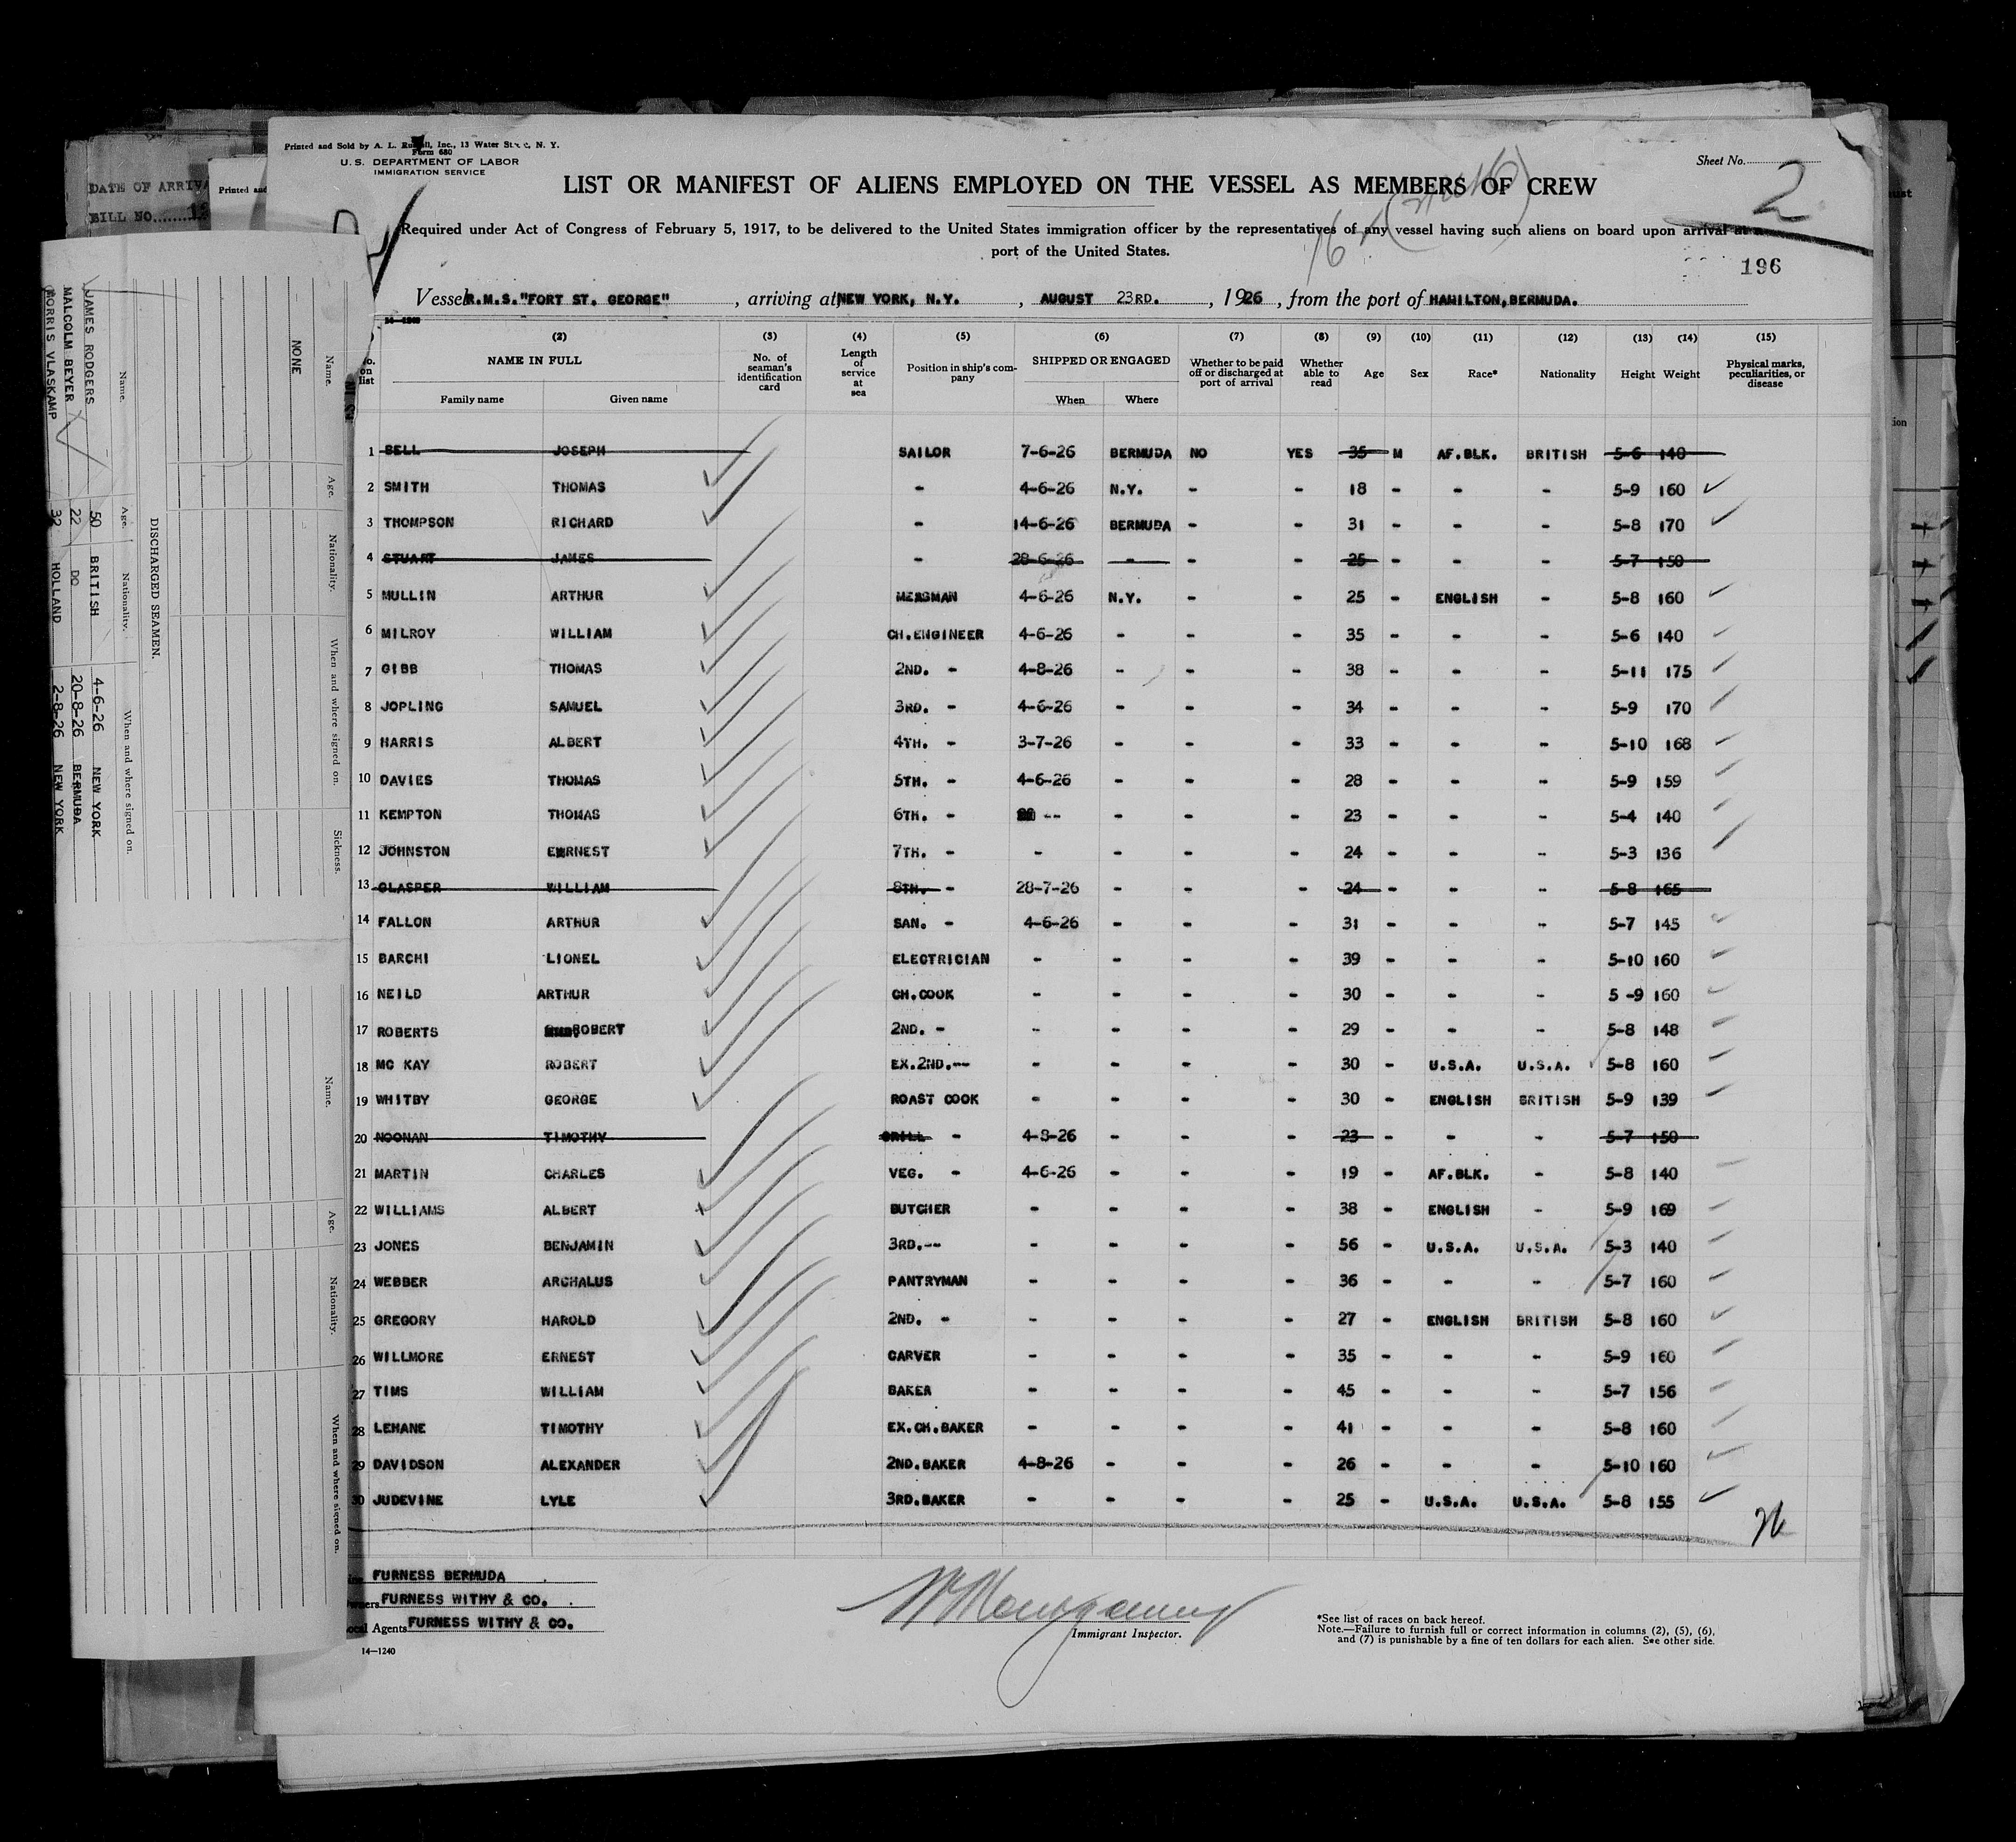 Printed and Sold by A. L. Russell, Inc., 13 Water St., N. Y.
Form 680
U. S. DEPARTMENT OF LABOR
IMMIGRATION SERVICE
Sheet No.
2
LIST OR MANIFEST OF ALIENS EMPLOYED ON THE VESSEL AS MEMBERS OF CREW
Required under Act of Congress of February 5, 1917, to be delivered to the United States immigration officer by the representatives of any vessel having such aliens on board upon arrival at a
port of the United States.
196
Vessel R.M.S."FORT ST. GEORGE" , arriving at NEW YORK, N.Y. , AUGUST 23RD. , 1926 , from the port of HAMILTON,BERMUDA.
(2) (3) (4) (5) (6) (7) (8) (9) (10) (11) (12) (13) (14) (15)
No. on list NAME IN FULL Family name Given name No. of seaman's identification card Length of service at sea Position in ship's company SHIPPED OR ENGAGED When Where Whether to be paid off or discharged at port of arrival Whether able to read Age Sex Race* Nationality Height Weight Physical marks, peculiarities, or disease
1 BELL JOSEPH SAILOR 7-6-26 BERMUDA NO YES 35 M AF.BLK. BRITISH 5-6 140
2 SMITH THOMAS - 4-6-26 N.Y. - - 18 - - - 5-9 160
3 THOMPSON RICHARD - 14-6-26 BERMUDA - - 31 - - - 5-8 170
4 STUART JAMES - 28-6-26 - - - 25 - - - 5-7 150
5 MULLIN ARTHUR MESSMAN 4-6-26 N.Y. - - 25 - ENGLISH - 5-8 160
6 MILROY WILLIAM CH.ENGINEER 4-6-26 - - - 35 - - - 5-6 140
7 GIBB THOMAS 2ND. - 4-8-26 - - - 38 - - - 5-11 175
8 JOPLING SAMUEL 3RD. - 4-6-26 - - - 34 - - - 5-9 170
9 HARRIS ALBERT 4TH. - 3-7-26 - - - 33 - - - 5-10 168
10 DAVIES THOMAS 5TH. - 4-6-26 - - - 28 - - - 5-9 159
11 KEMPTON THOMAS 6TH. - -- - - - 23 - - - 5-4 140
12 JOHNSTON ERNEST 7TH. - - - - - 24 - - - 5-3 136
13 GLASPER WILLIAM 8TH. - 28-7-26 - - - 24 - - - 5-8 165
14 FALLON ARTHUR SAN. - 4-6-26 - - - 31 - - - 5-7 145
15 BARCHI LIONEL ELECTRICIAN - - - - 39 - - - 5-10 160
16 NEILD ARTHUR CH.COOK - - - - 30 - - - 5-9 160
17 ROBERTS ROBERT 2ND. - - - - - 29 - - - 5-8 148
18 MC KAY ROBERT EX.2ND.-- - - - - 30 - U.S.A. U.S.A. 5-8 160
19 WHITBY GEORGE ROAST COOK - - - - 30 - ENGLISH BRITISH 5-9 139
20 NOONAN TIMOTHY GRILL - 4-8-26 - - - 23 - - - 5-7 150
21 MARTIN CHARLES VEG. - 4-6-26 - - - 19 - AF.BLK. - 5-8 140
22 WILLIAMS ALBERT BUTCHER - - - - 38 - ENGLISH - 5-9 169
23 JONES BENJAMIN 3RD.-- - - - - 56 - U.S.A. U.S.A. 5-3 140
24 WEBBER ARCHALUS PANTRYMAN - - - - 36 - - - 5-7 160
25 GREGORY HAROLD 2ND. - - - - - 27 - ENGLISH BRITISH 5-8 160
26 WILLMORE ERNEST CARVER - - - - 35 - - - 5-9 160
27 TIMS WILLIAM BAKER - - - - 45 - - - 5-7 156
28 LEHANE TIMOTHY EX.CH.BAKER - - - - 41 - - - 5-8 160
29 DAVIDSON ALEXANDER 2ND.BAKER 4-8-26 - - - 26 - - - 5-10 160
30 JUDEVINE LYLE 3RD.BAKER - - - - 25 - U.S.A. U.S.A. 5-8 155
26
FURNESS BERMUDA
Owners FURNESS WITHY & CO.
Local Agents FURNESS WITHY & CO.
14—1240
Immigrant Inspector.
*See list of races on back hereof.
Note.—Failure to furnish full or correct information in columns (2), (5), (6),
and (7) is punishable by a fine of ten dollars for each alien. See other side.
DATE OF ARRIVA
BILL NO.
Printed and
Name. Age. Nationality. When and where signed on. Sickness.
NONE
DISCHARGED SEAMEN.
Name. Age. Nationality. When and where signed on.
JAMES RODGERS 50 BRITISH 4-6-26 NEW YORK
MALCOLM BEYER 22 DO 20-8-26 BERMUDA
MORRIS VLASKAMP 32 HOLLAND 2-8-26 NEW YORK
Name. Age. Nationality. When and where signed on.